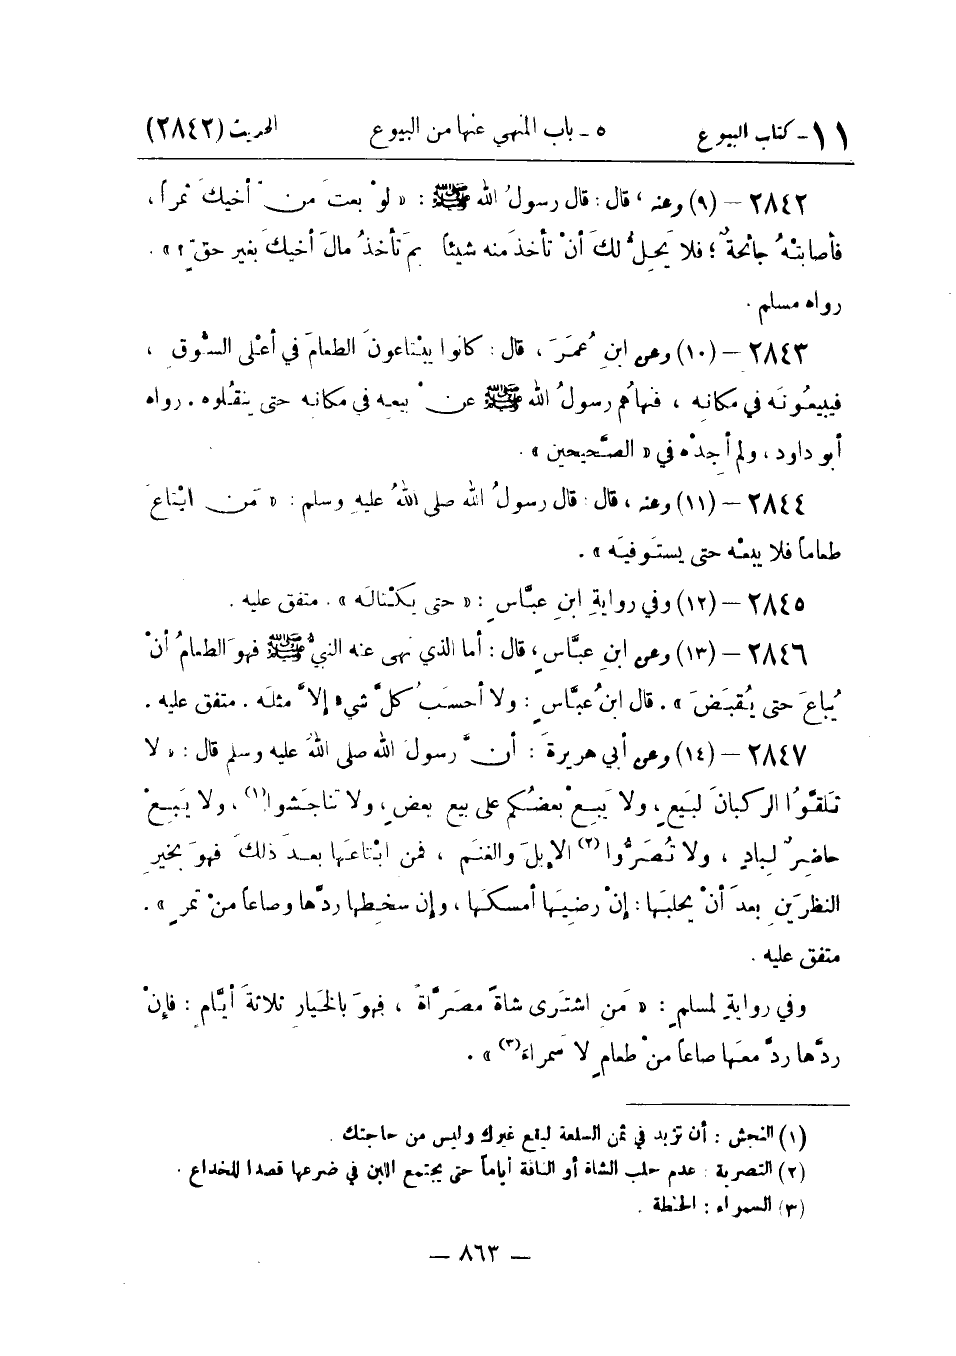 ١١ - كتاب البيوع ٥ - باب المنهي عنها من البيوع الحديث (٢٨٤٢)
٢٨٤٢ - (٩) وعنه ، قال : قال رسولُ الله ﷺ : « لوْ بعتَ منْ أخيكَ ثمراً ،
فأصابتْهُ جائحةٌ ؛ فلا يَحِلُّ لكَ أنْ تأخذَ منه شيئاً بمَ تأخذُ مالَ أخيكَ بغير حقٍّ ؟ » .
رواه مسلم .
٢٨٤٣ - (١٠) وعن ابنِ عُمَرَ ، قال : كانوا يبْتاعونَ الطعامَ في أعْلى السُّوقِ ،
فيبيعُونَه في مكانِه ، فنهاهُم رسولُ الله ﷺ عنْ بيعِه في مكانه حتى ينقُلوه . رواه
أبو داود ، ولم أجِدْه في « الصَّحيحين » .
٢٨٤٤ - (١١) وعنه ، قال : قال رسولُ الله صلى اللهُ عليهِ وسلم : « مَن ابْتاعَ
طعاماً فلا يبعْه حتى يستَوفيَه » .
٢٨٤٥ - (١٢) وفي روايةِ ابنِ عبَّاسٍ : « حتى يكْتالَه » . متفق عليه .
٢٨٤٦ - (١٣) وعن ابنِ عبَّاسٍ ، قال : أما الذي نهى عنه النبيُّ ﷺ فهوَ الطعامُ أنْ
يُباعَ حتى يُقبَضَ » . قال ابنُ عبَّاسٍ : ولا أحسَبُ كلَّ شيءٍ إلاَّ مثلَه . متفق عليه .
٢٨٤٧ - (١٤) وعن أبي هريرةَ : أنَّ رسولَ الله صلى اللهُ عليه وسلم قال : « لا
تلَقَّوُا الركبانَ لبَيعٍ ، ولا يَبِعْ بعضُكم على بيع بعضٍ ، ولا تناجَشوا(١) ، ولا يَبِعْ
حاضِرٌ لِبادٍ ، ولا تُصَرُّوا(٢) الإبلَ والغنَم ، فمن ابْتاعَها بعدَ ذلكَ فهوَ بخيرِ
النظرَينِ بعدَ أنْ يحلبَها : إنْ رضِيَها أمسكَها ، وإن سخطها ردَّها وصاعاً منْ تمرٍ » .
متفق عليه .
وفي روايةٍ لمسلمٍ : « مَنِ اشتَرى شاةً مصَرَّاةً ، فهوَ بالخيارِ ثلاثةَ أيَّامٍ : فإنْ
ردَّها ردَّ معَها صاعاً منْ طعامٍ لا سَمراءَ(٣) » .
(١) النجش : أن تزيد في ثمن السلعة ليقع غيرك وليس من حاجتك .
(٢) التصرية : عدم حلب الشاة أو الناقة أياماً حتى يجتمع اللبن في ضرعها قصداً للخداع .
(٣) السمراء : الحنطة .
— ٨٦٣ —